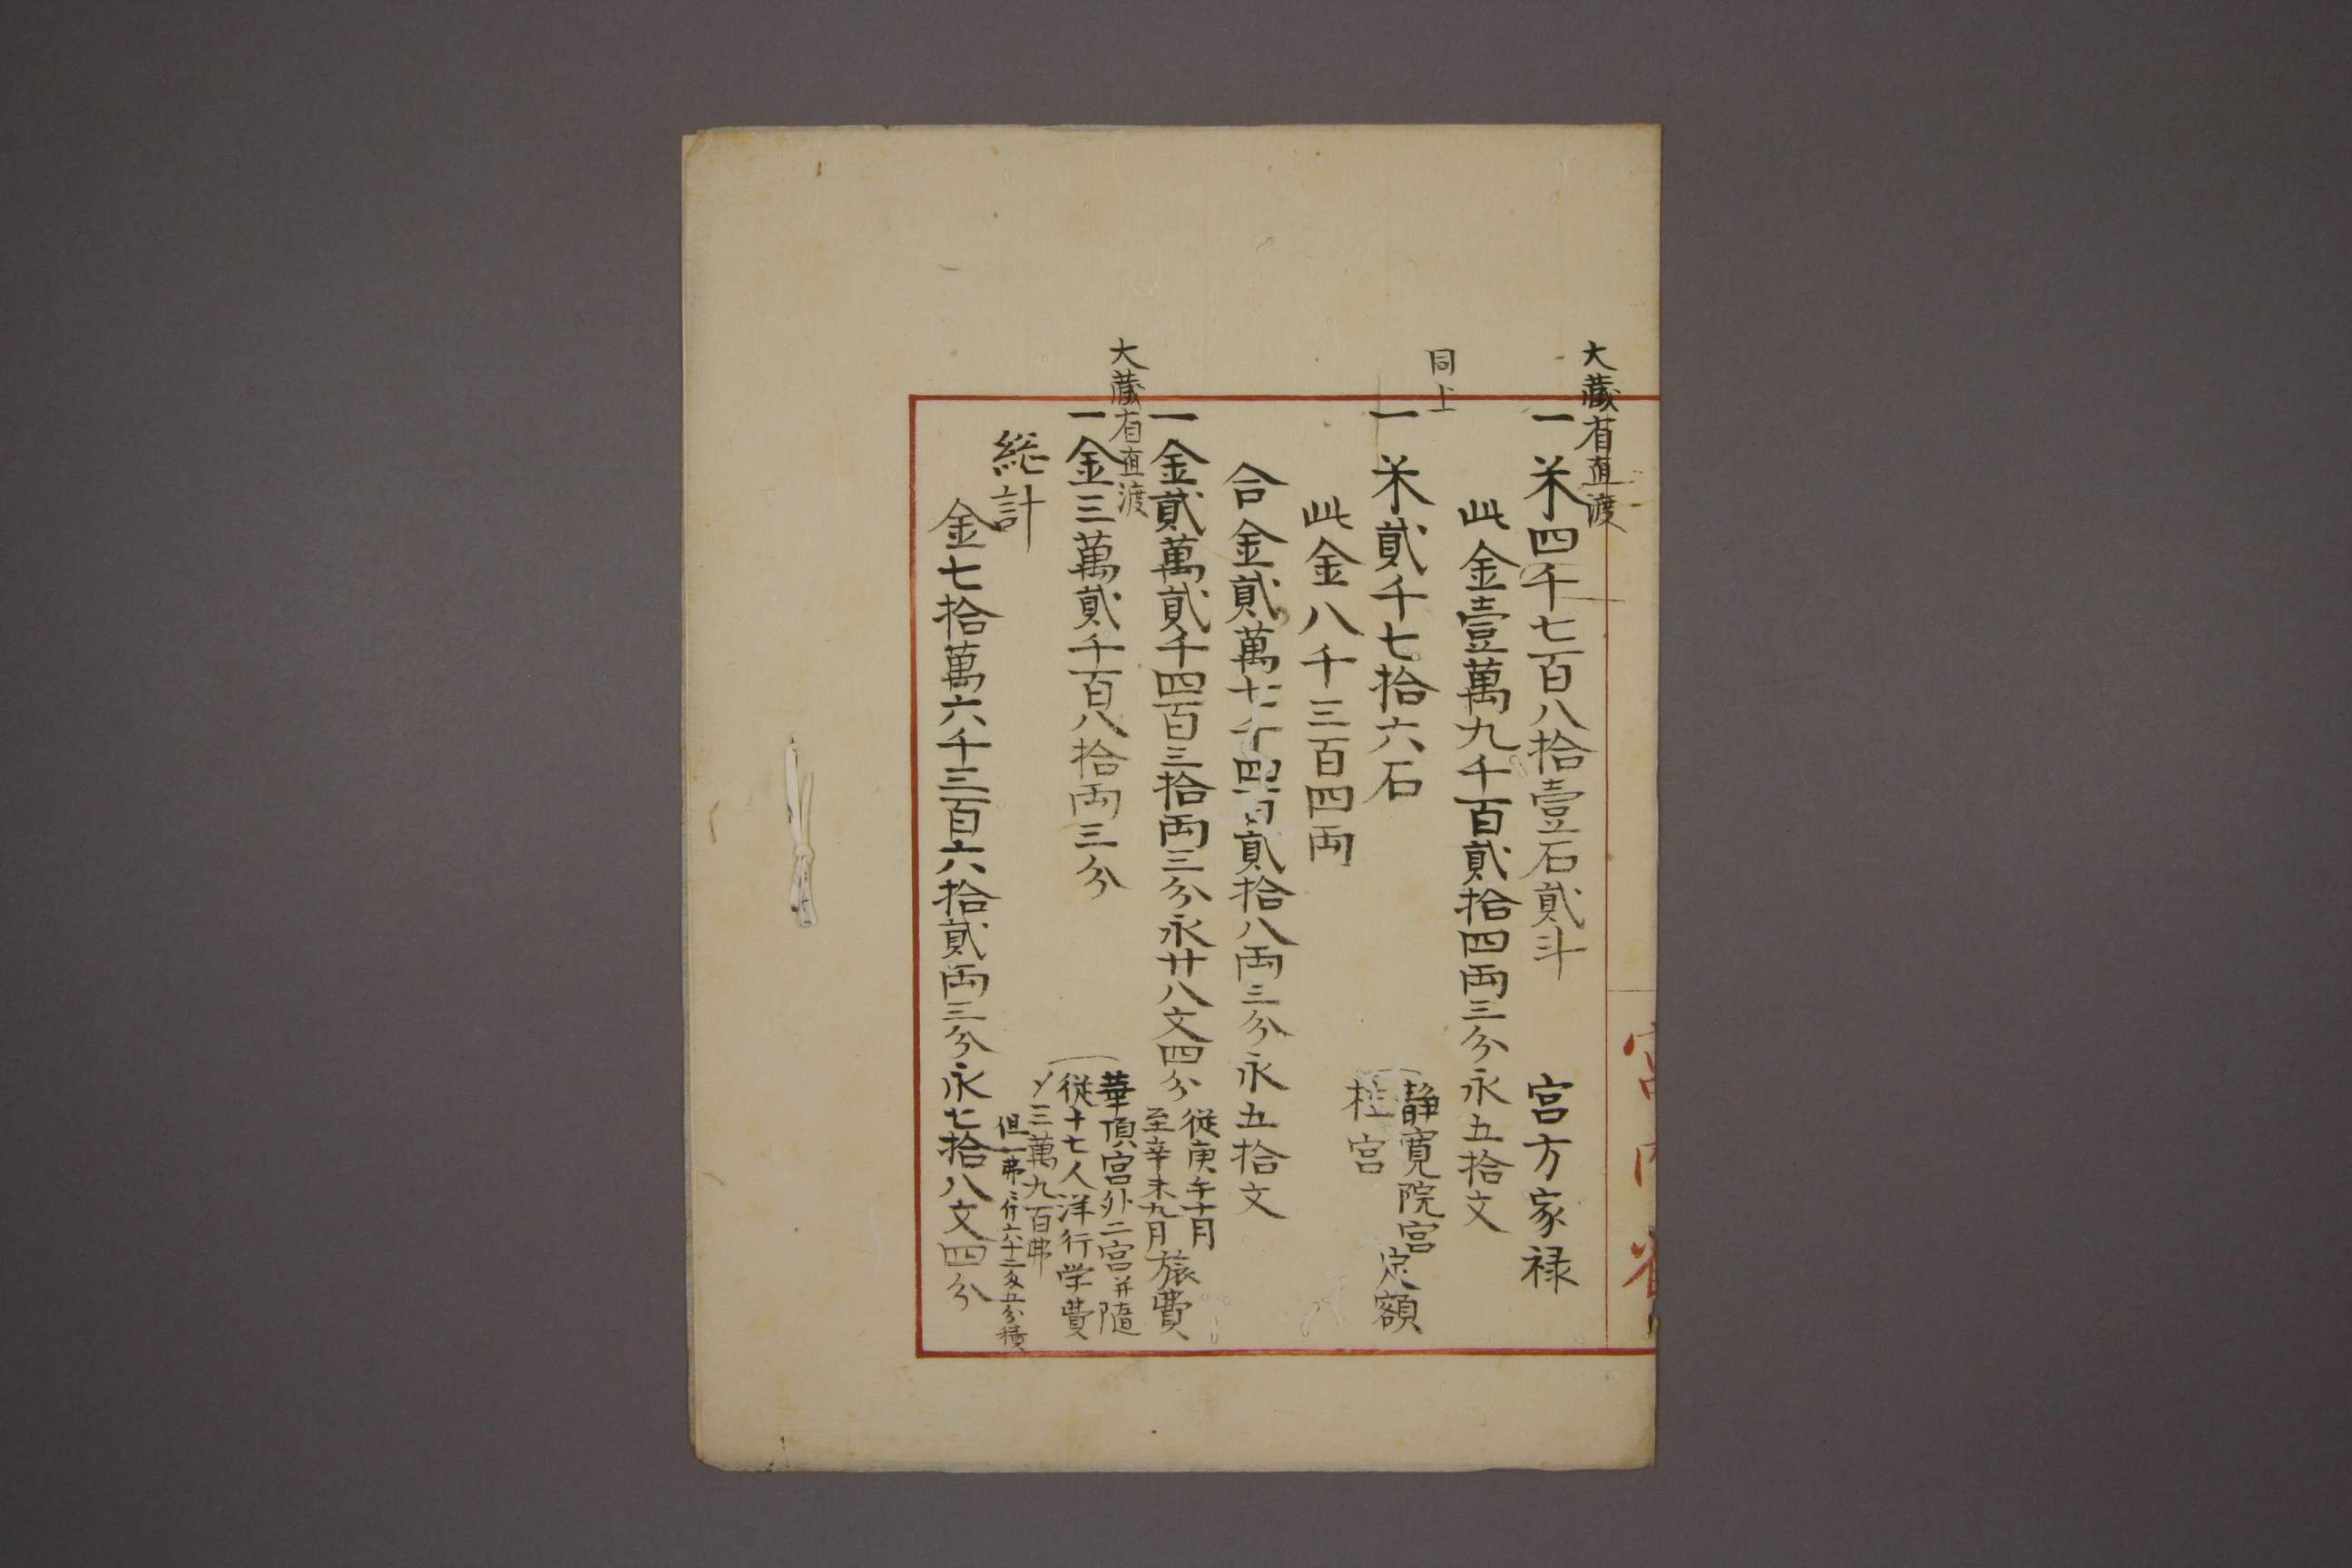 宮内省
大蔵省直渡
一米四千七百八拾壹石貳斗　宮方家禄
此金壹萬九千百貳拾四両三分永五拾文
同上
一米貳千七拾六石　静寛院宮　桂宮　定額
此金八千三百四両
合金貳萬七千四百貳拾八両三分永五拾文
一金貳萬貳千四百三拾両三分永廿八文四分　従庚午十月　至辛未九月　旅費
大蔵省直渡
一金三萬貳千百八拾両三分　華頂宮外二宮并随
従十七人洋行学費
〆三萬九百弗
但一弗ニ付六十二匁五分積
総計
金七拾萬六千三百六拾貳両三分永七拾八文四分